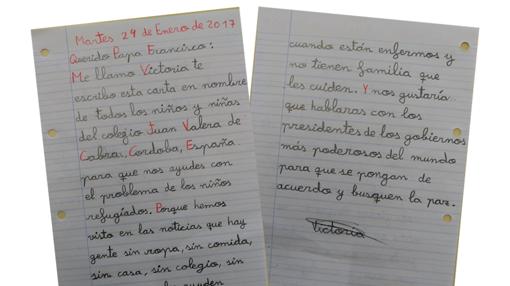 Martes 24 de Enero de 2017
Querido Papa Francisco:
Me llamo Victoria te
escribo esta carta en nombre
de todos los niños y niñas
del colegio Juan Valera de
Cabra, Cordoba, España
para que nos ayudes con
el problema de los niños
refugiados. Porque hemos
visto en las noticias que hay
gente sin ropa, sin comida,
sin casa, sin colegio, sin
cuando están enfermos y
no tienen familia que
les cuiden. Y nos gustaría
que hablaras con los
presidentes de los gobiernos
más poderosos del mundo
para que se pongan de
acuerdo y busquen la paz.
Victoria